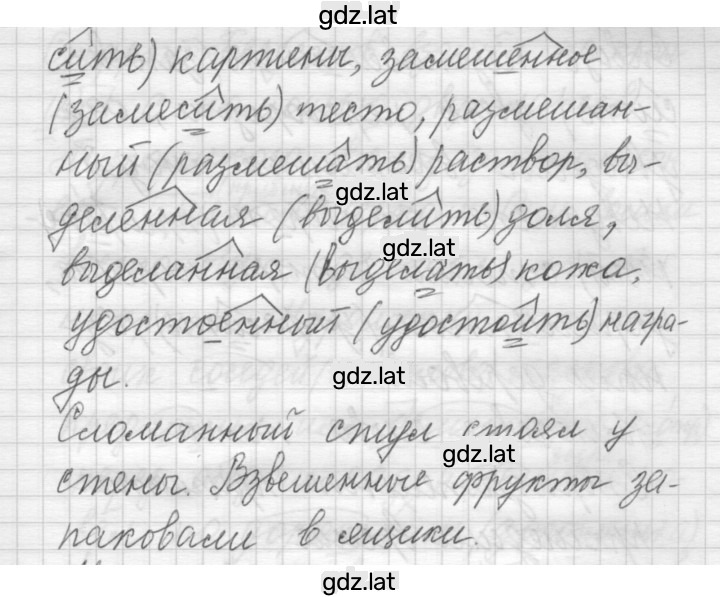 gdz.lat
сить) картины, замешенное
(замесить) тесто, размешан-
ный (размешать) раствор, вы-
gdz.lat
деленная (выделить) доля,
gdz.lat
выделанная (выделать) кожа,
удостоенный (удостоить) награ-
ды.
gdz.lat
Сломанный стул стоял у
gdz.lat
стены. Взвешенные фрукты за-
паковали в ящики.
gdz.lat